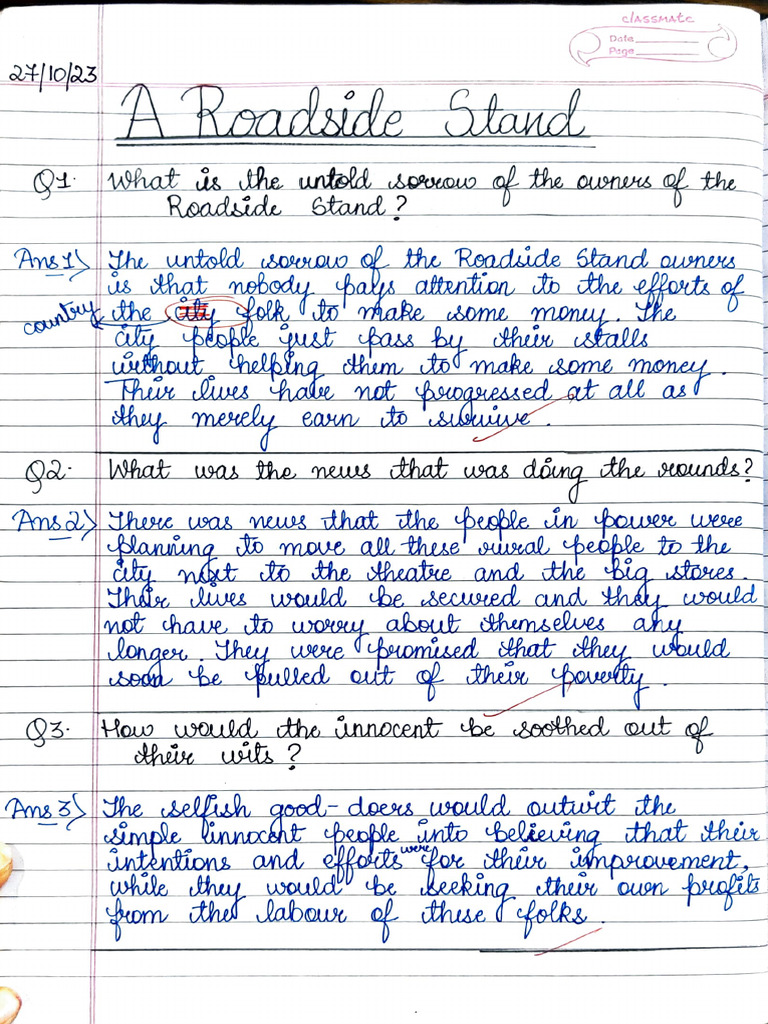 classmate
Date
Page
27/10/23
A Roadside Stand
Q1. What is the untold sorrow of the owners of the
Roadside Stand?
Ans 1) The untold sorrow of the Roadside Stand owners
is that nobody pays attention to the efforts of
country the city folk to make some money. The
city people just pass by their stalls
without helping them to make some money.
Their lives have not progressed at all as
they merely earn to survive.
Q2. What was the news that was doing the rounds?
Ans 2) There was news that the people in power were
planning to move all these rural people to the
city next to the theatre and the big stores.
Their lives would be secured and they would
not have to worry about themselves any
longer. They were promised that they would
soon be pulled out of their poverty.
Q3. How would the innocent be soothed out of
their wits?
Ans 3) The selfish good-doers would outwit the
simple innocent people into believing that their
intentions and efforts were for their improvement,
while they would be seeking their own profits
from the labour of these folks.